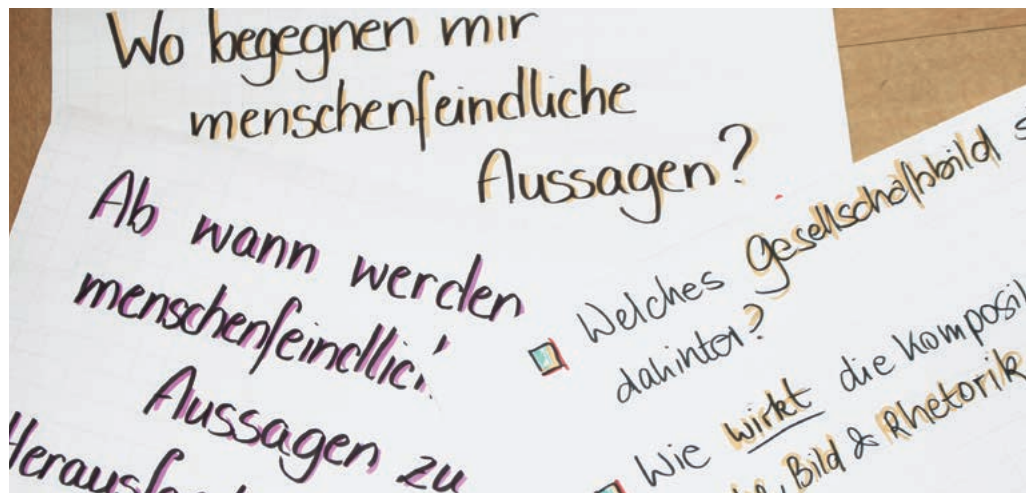 Wo begegnen mir
menschenfeindliche
Aussagen?
Ab wann werden
menschenfeindlic
Aussagen zu
Welches Gesellschaftsbild s
dahinter?
Wie wirkt die Komposi
Bild & Rhetorik